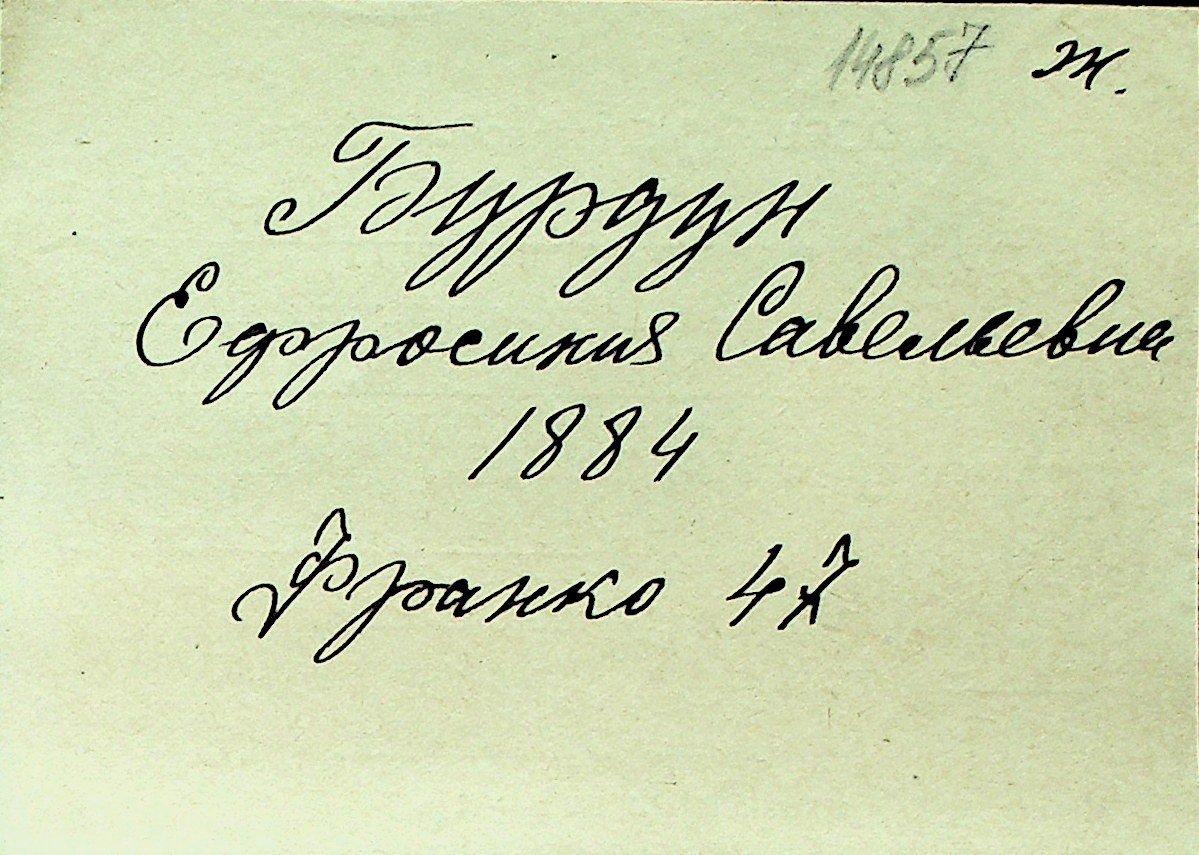 14857 ж.
Бурдун
Ефросиния Савельевна
1884
Франко 47